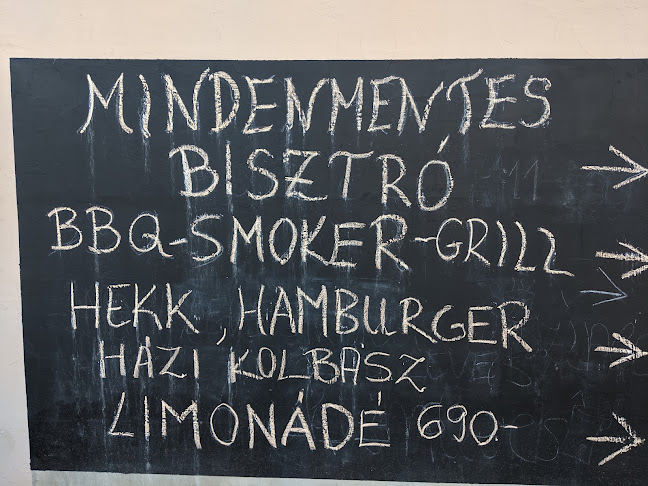 MINDENMENTES
BISZTRÓ
BBQ-SMOKER-GRILL
HEKK, HAMBURGER
HÁZI KOLBÁSZ
LIMONÁDÉ 690.-